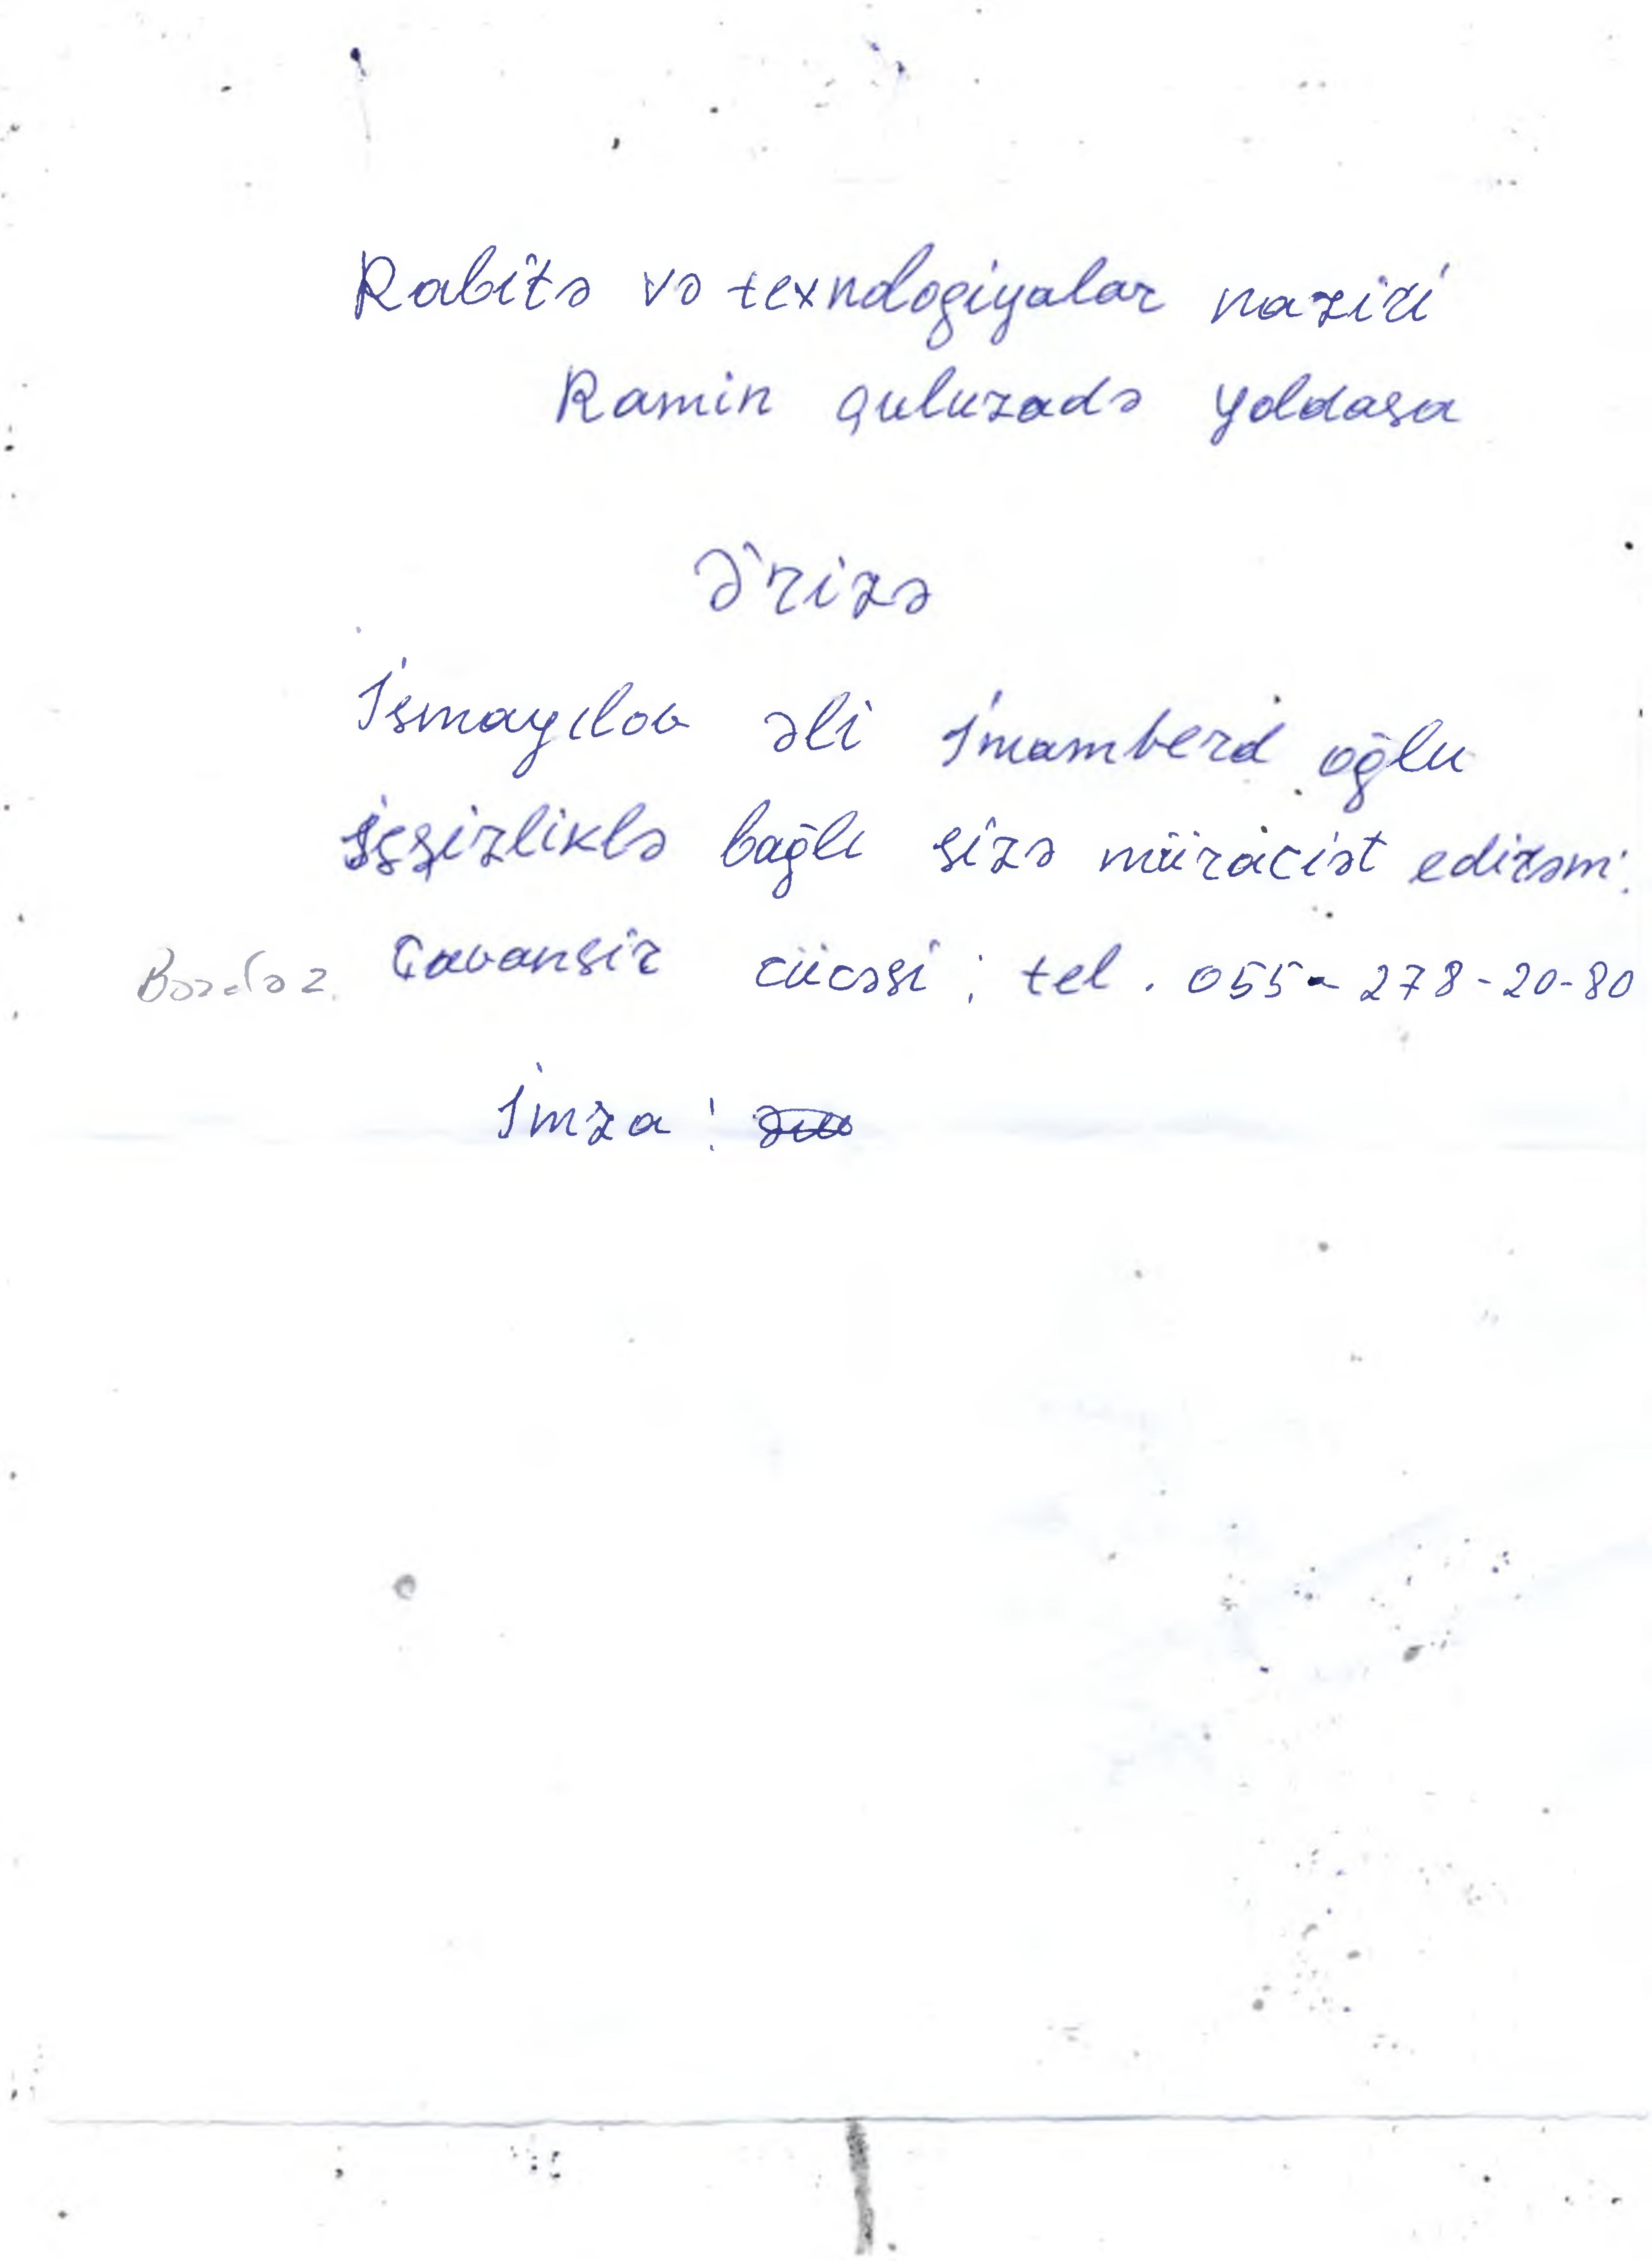 Rabitə və texnologiyalar naziri
Ramin quluzadə yoldaşa
Ə'rizə
İşmayılov əli İmamberd oğlu
işşizliklə bağlı şizə müraciət edirəm.
Çavanşir cücəşi; tel. 055-278-20-80
İmza: